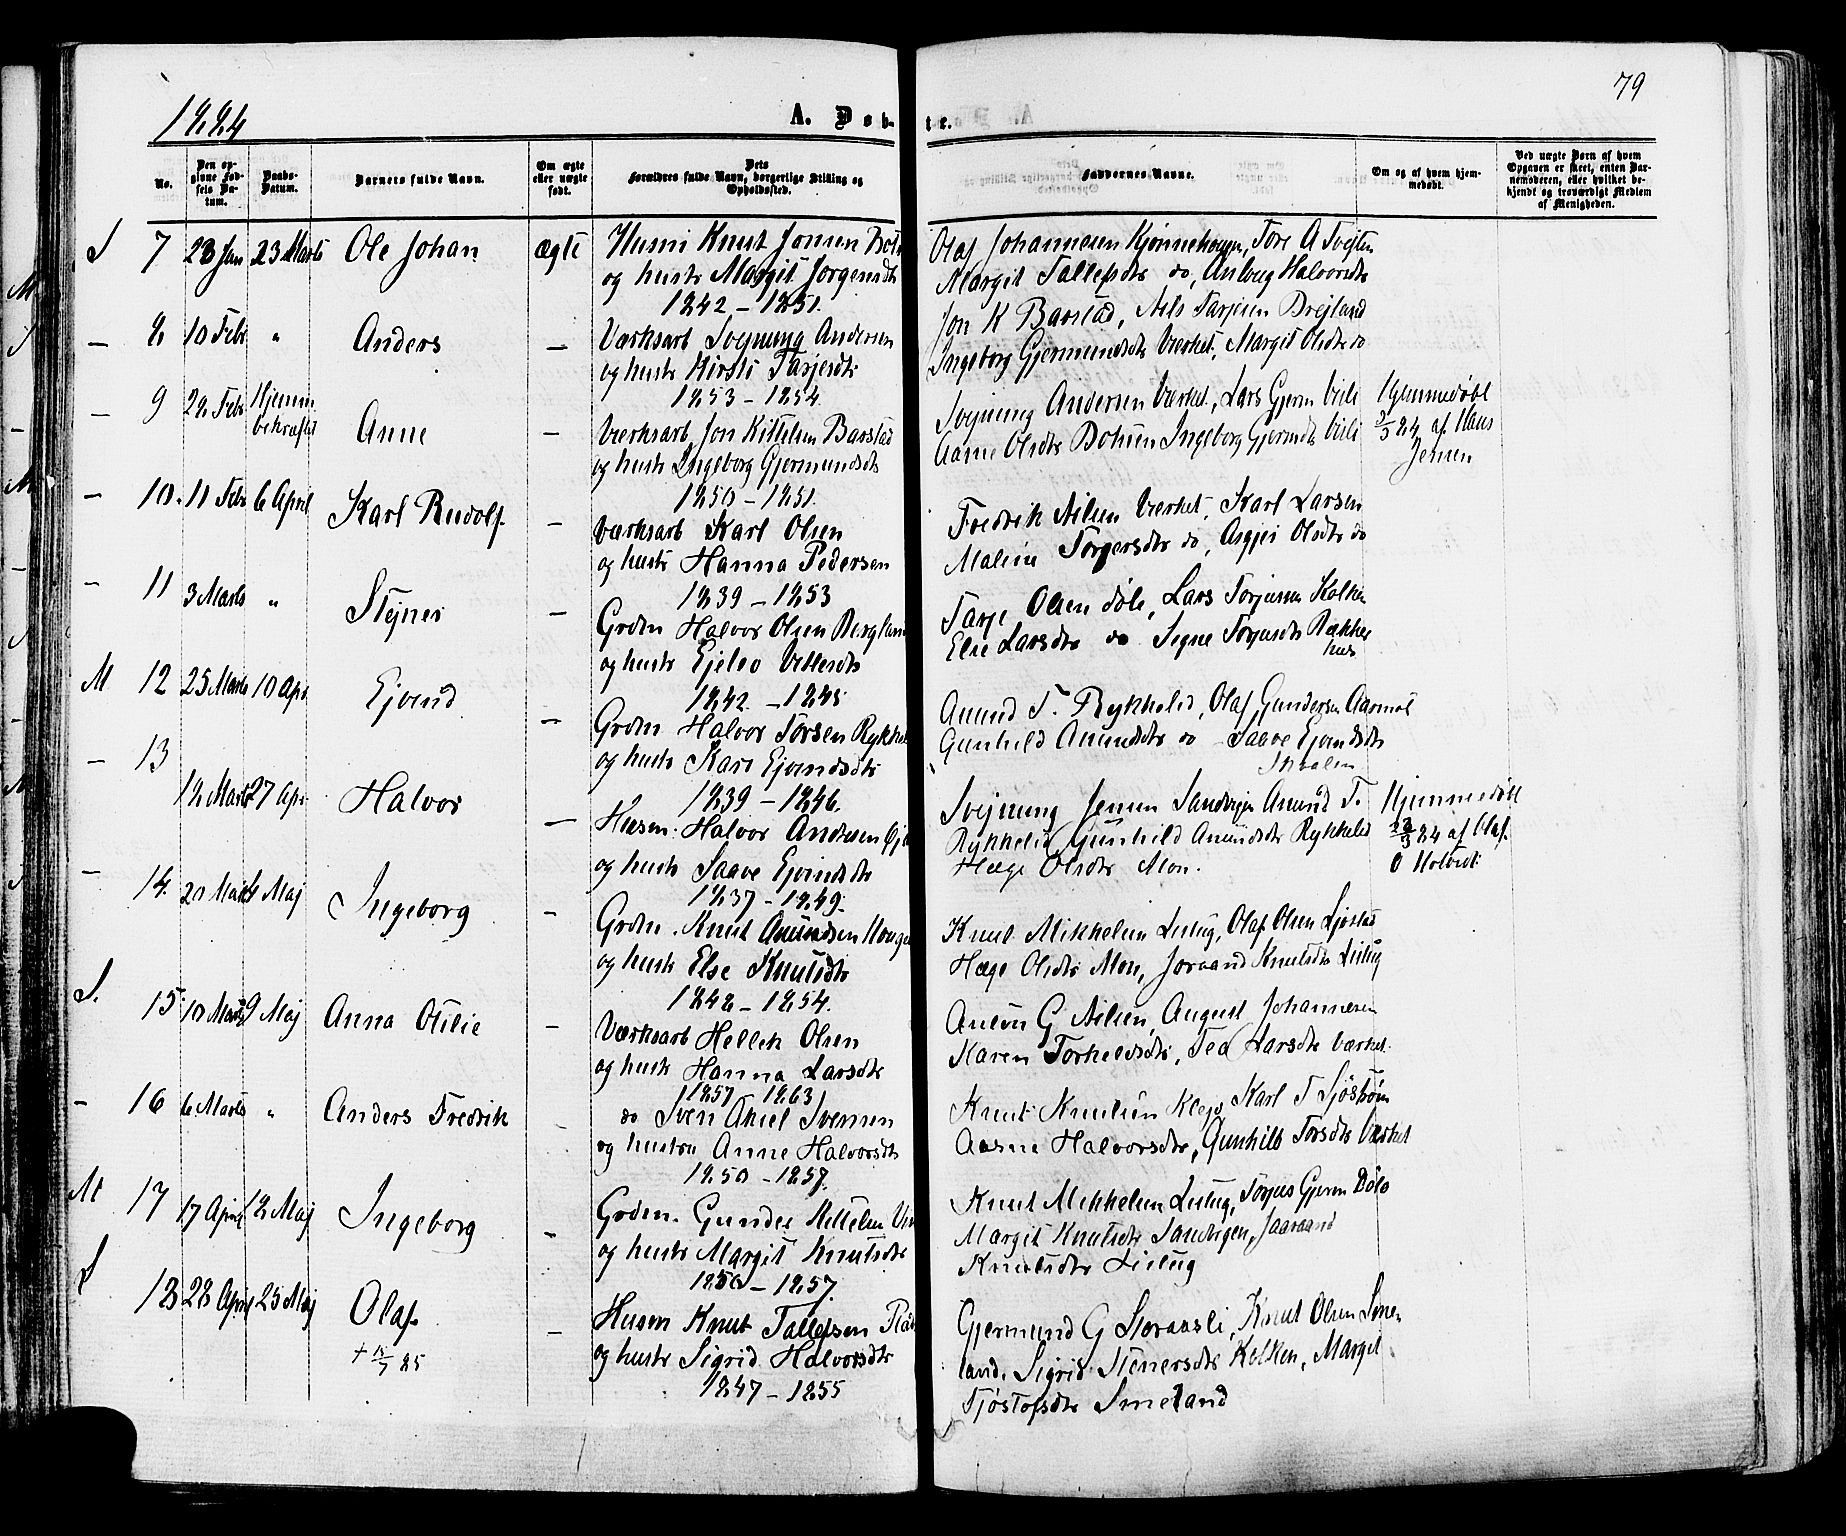 79
1884
A. Døb- te.
No.
Den opgivne Fødsels Datum.
Daabs-Datum.
Barnets fulde Navn.
Om ægte eller uægte født.
Dets Forældres fulde Navn, borgerlige Stilling og Opholdssted.
Faddernes Navne.
Om og af hvem hjemmedøbt.
Ved uægte Børn af hvem Opgaven er skeet, enten Barnemoderen, eller hvilket bekjendt og troværdigt Medlem af Menigheden.
S 7 23 Jan 23 Marts Ole Johan ægte Husm Knut Jonsen
og hustr Margit Jørgensdtr
1842 – 1851.
Olaf Johannesen Kjønnehougen, Tore A Tvejten
Margit Tallefsdtr do, Anlaug Halvorsdtr
— 8 10 Febr " Anders — Værksarb Svejnung Andersen
og hustr Kirsti Tarjeisdtr
1853 – 1854
Jon K Barstad, Nils Tarjeisen Brejland
Ingeborg Gjermundsdtr Værket, Margit Olsdtr do
— 9 28 Febr Hjemm. bekræftet Anne — Værksarb Jon Kittelsen Barstad
og hustr Ingeborg Gjermundsdtr
1850 – 1851.
Svejnung Andersen Værket, Lars Gjerm
Aasne Olsdtr Ingeborg Gjermdtr
Hjemmedøbt
2/3 84 af Hans
Jensen
— 10. 11 Febr 6 April Karl Rudolf — Værksarb Karl Olsen
og hustr Hanna Pedersen
1839 – 1853
Fredrik Nilsen Værket, Karl Larsen
Malene Torjersdtr do, Asgjer Olsdtr do
— 11 3 Marts " Stejner — Grdm Halvor Olsen Bergland
og hustr Ejelev Vetlesdtr
1842 – 1845
Tarje Olsen Døle, Lars Torjussen Kolken
Else Larsdtr do Signe Torjusdtr
M 12 25 Marts 10 Apr Ejvend — Grdm Halvor Torsen Rykkel
og hustr Kari Ejvendsdtr
1839 – 1846.
Anund T. Rykkelid, Olaf Gundersen Aasmo
Gunhild Anundsdtr do – Saave Ejvendsdtr
Skaalen
— 13 12 Marts 27 Apr Halvor — Husm. Halvor Andersen
og hustr Saave Ejvindsdtr
1837 – 1849.
Svejnung Jensen Sandvigen Anund T.
Rykkelid, Gunhild Anundsdtr Rykkelid
Hæge Olsdtr Moen.
Hjemmedøbt
23/3 84 af Olaf
O
— 14. 20 Marts 4 Maj Ingeborg — Grdm. Knut Anundsen Houge
og hustr Else Knutsdtr
1848 – 1854.
Knut Mikkelsen Listug, Olaf Olsen
Hæge Olsdtr Moen, Joraand Knutsdtr Listug
S. 15 10 Marts 9 Maj Anna Otilie — Værksarb Hellek Olsen
og hustr Hanna Larsdtr
1857 1863
Anton G Nilsen, August Johannesen
Karen Torkelsdtr, Tea Larsdtr Værket.
— 16 6 Marts " Anders Fredrik — do Sven Aksel Svensen
og hustru Anne Halvorsdtr
1850 – 1857.
Knut Knutsen Klep, Karl T Sjøstrøm
Aasne Halvorsdtr, Gunhild Torsdtr Værket
M 17 17 April 12 Maj Ingeborg — Grdm. Gunder Kittelsen
og hustr Margit Knutsdtr
1850 – 1857.
Knut Mikkelsen Listug, Torjus Gjerm Døle
Margit Knutsdtr Sandvigen, Jaaraand
Knutsdtr Listug
S 18 28 April 25 Maj Olaf — Husm Knut Tallefsen
+ 15/7 85
og hustr Sigrid Halvorsdtr
1847 – 1855
Gjermund G Storaasli, Knut Olsen Sme-
land, Sigrid Stenersdtr Kolken, Margit
Tjøstofsdtr Smeland